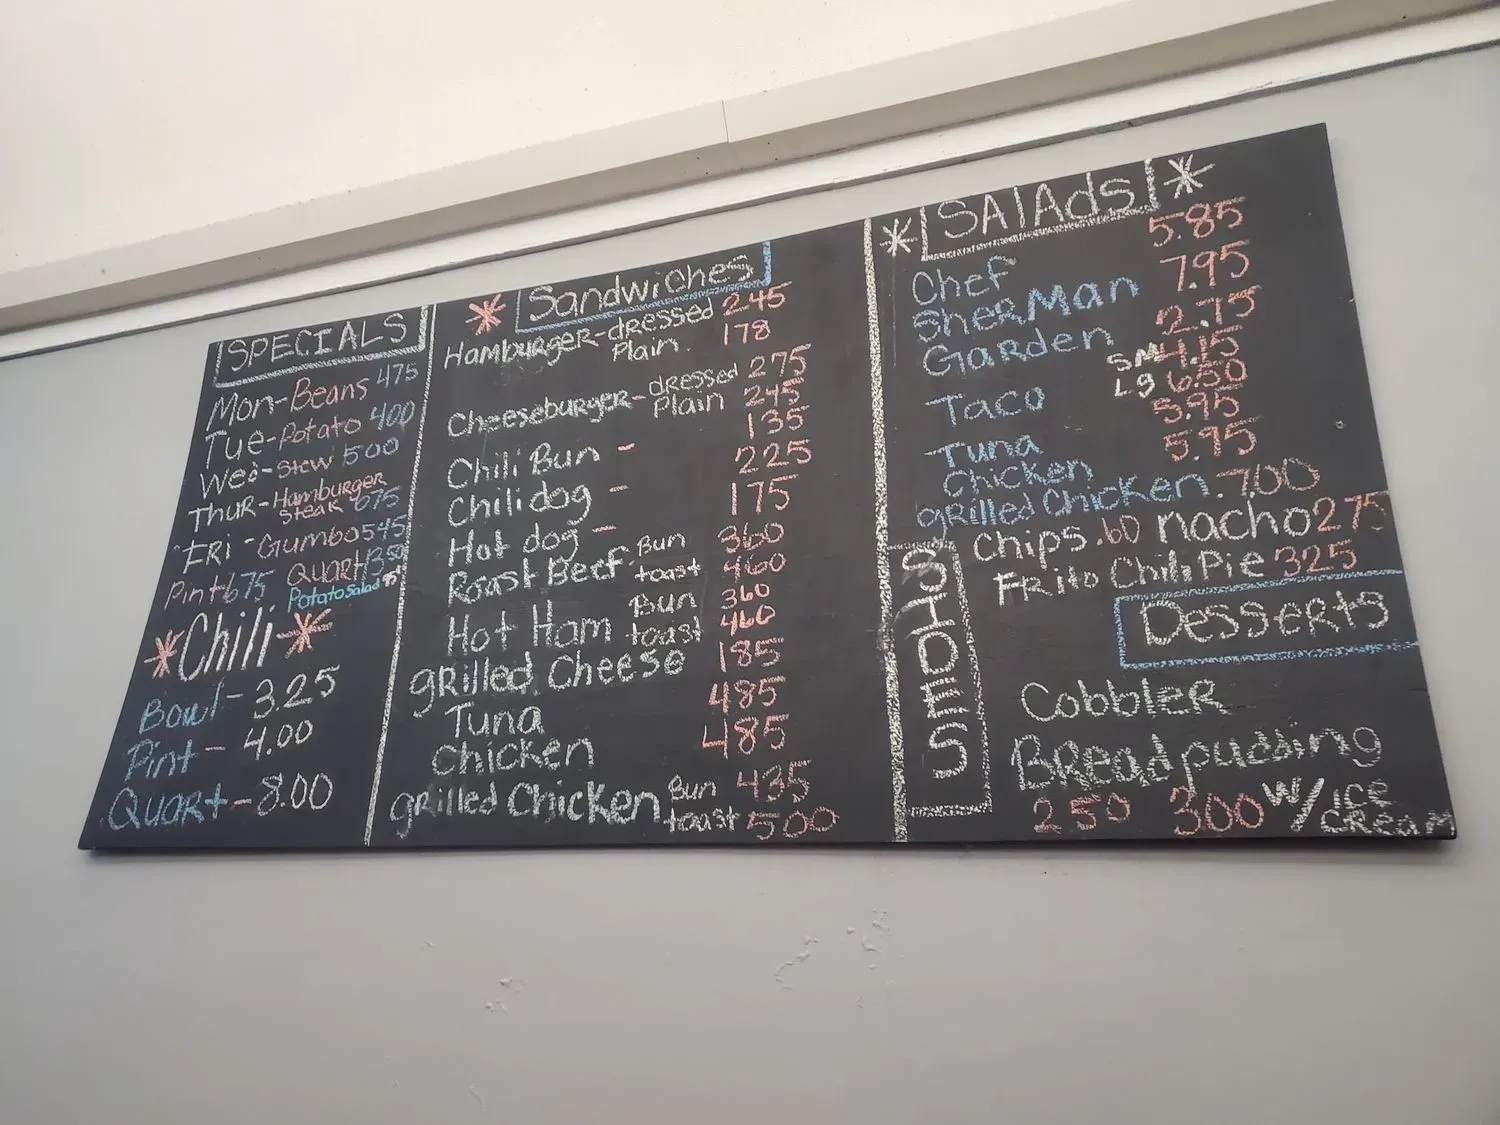 SPECIALS
Mon-Beans 475
Tue-Potato 400
Wed-Stew 500
Thur-Hamburger
Steak 675
FRI-Gumbo 545
Pint 675 Quart 1350
Potato Salad
*Chili*
Bowl-3.25
Pint-4.00
Quart-8.00
* Sandwiches
Hamburger-dressed 245
Plain 178
Cheeseburger-dressed 275
Plain 245
Chili Bun - 135
Chili dog - 225
Hot dog - 175
Roast Beef Bun 360
toast 460
Hot Ham Bun 360
toast 460
grilled Cheese 185
Tuna 485
Chicken 485
grilled Chicken Bun 435
toast 500
* SALAdS *
Chef 5.85
SherMan 7.95
Garden 2.75
Taco SM 4.15
Lg 6.50
Tuna 5.95
Chicken 5.95
grilled Chicken 7.00
SIDES
Chips .60 nacho 275
Frito Chili Pie 325
Desserts
Cobbler
Bread pudding
250 300 w/ice
cream